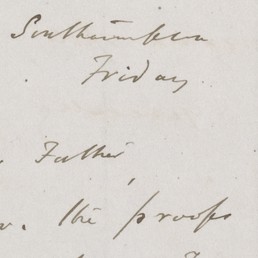 Southampton
Friday
Father,
. The proofs